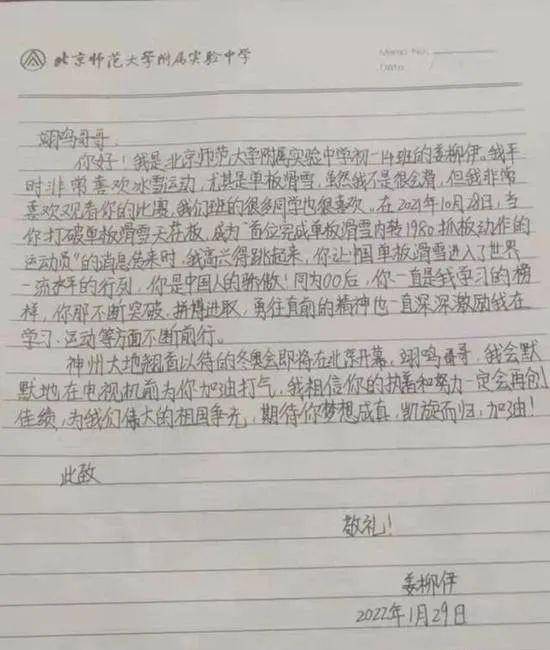 北京师范大学附属实验中学
Memo No.
Date
翊鸣哥哥:
你好！我是北京师范大学附属实验中学初一14班的姜柳伊。我平
时非常喜欢冰雪运动，尤其是单板滑雪，虽然我不是很会滑，但我非常
喜欢观看你的比赛，我们班的很多同学也很喜欢。在2021年10月28日，当
你打破单板滑雪天花板，成为“首位完成单板滑雪内转1980抓板动作的
运动员”的消息传来时，我高兴得跳起来，你让中国单板滑雪进入了世界
一流水平的行列，你是中国人的骄傲！同为00后，你一直是我学习的榜
样，你那不断突破、拼搏进取、勇往直前的精神也一直深深激励我在
学习、运动等方面不断前行。
神州大地翘首以待的冬奥会即将在北京开幕，翊鸣哥哥，我会默
默地在电视机前为你加油打气，我相信你的执着和努力一定会再创
佳绩，为我们伟大的祖国争光，期待你梦想成真，凯旋而归，加油！
此致
敬礼！
姜柳伊
2022年1月29日